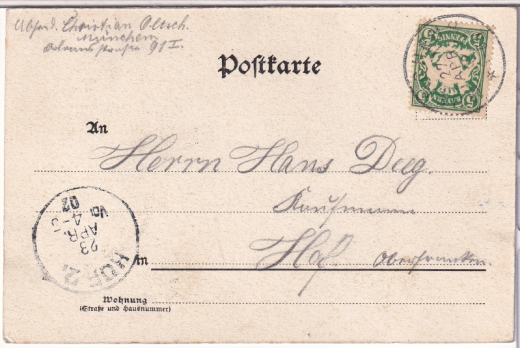 Absend. Christian Oetsch.
München
Adamstrasse 91 I.
Postkarte
An
Herrn Hans Deeg.
Kaufmann
in Hof. Oberfranken.
Wohnung
(Straße und Hausnummer)
HOF 2.
23
APR
4-5
Vor
02
APR